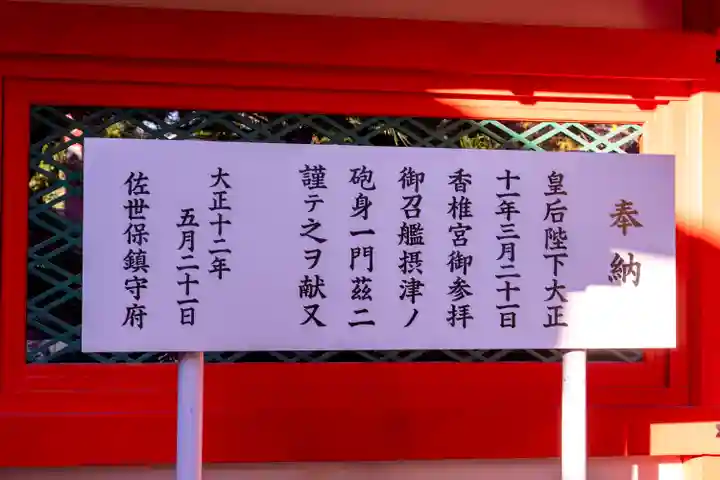 奉納
皇后陛下大正
十一年三月二十一日
香椎宮御参拝
御召艦摂津ノ
砲身一門茲二
謹テ之ヲ献又
大正十二年
五月二十一日
佐世保鎮守府